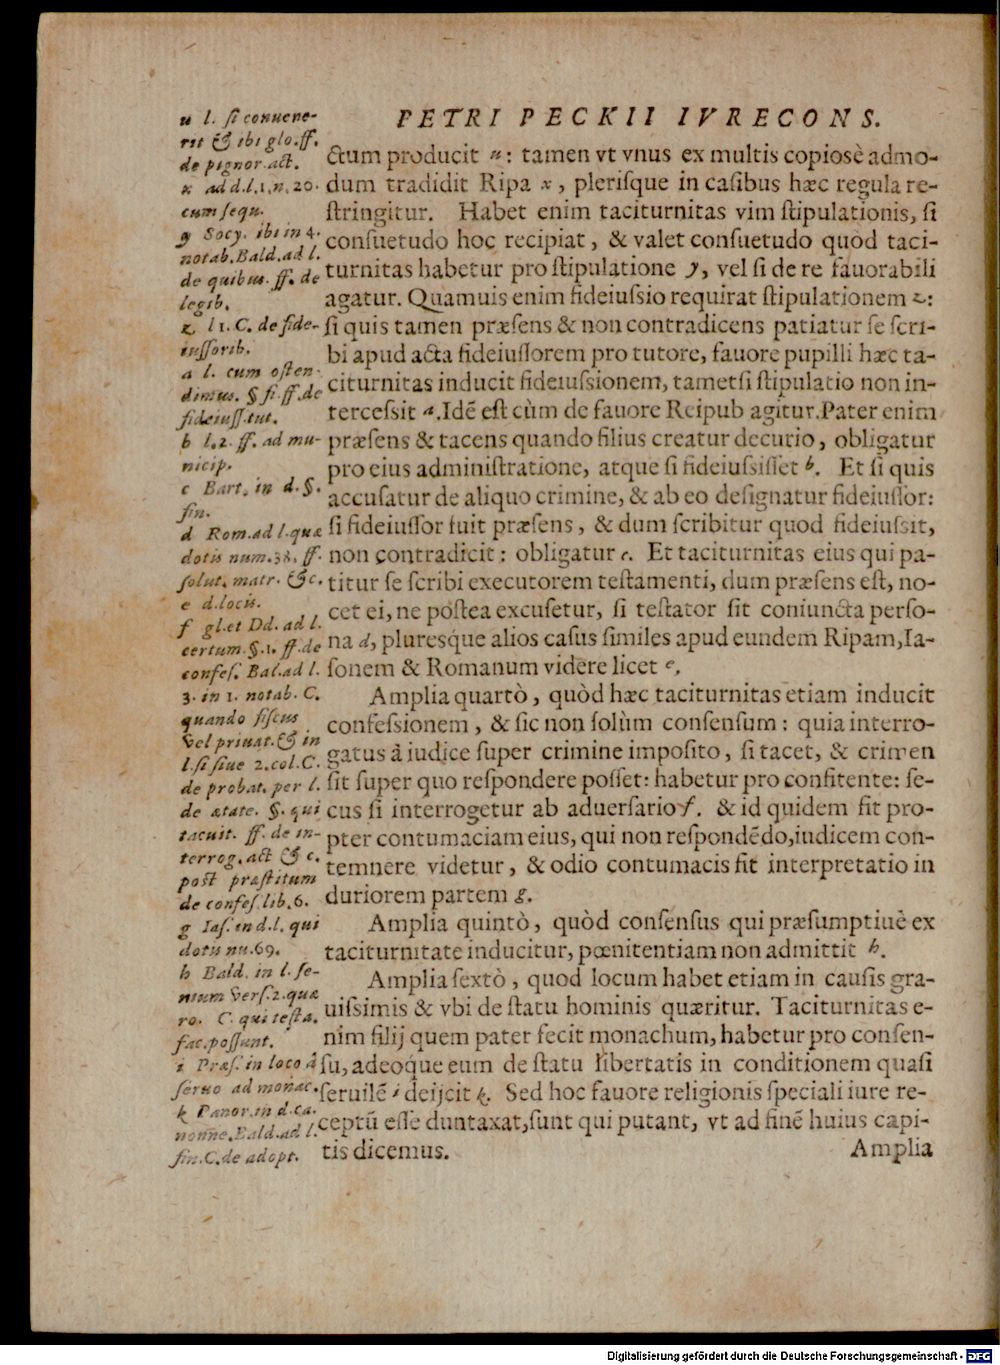 PETRI PECKII IVRECONS.
ctum producit u: tamen vt vnus ex multis copiosè admo-
dum tradidit Ripa x, plerisque in casibus hæc regula re-
stringitur. Habet enim taciturnitas vim stipulationis, si
consuetudo hoc recipiat, & valet consuetudo quòd taci-
turnitas habetur pro stipulatione y, vel si de re fauorabili
agatur. Quamuis enim fideiussio requirat stipulationem z:
si quis tamen præsens & non contradicens patiatur se scri-
bi apud acta fideiussorem pro tutore, fauore pupilli hæc ta-
citurnitas inducit fideiussionem, tametsi stipulatio non in-
tercessit a. Idē est cùm de fauore Reipub agitur. Pater enim
præsens & tacens quando filius creatur decurio, obligatur
pro eius administratione, atque si fideiussisset b. Et si quis
accusatur de aliquo crimine, & ab eo designatur fideiussor:
si fideiussor fuit præsens, & dum scribitur quod fideiussit,
non contradicit: obligatur c. Et taciturnitas eius qui pa-
titur se scribi executorem testamenti, dum præsens est, no-
cet ei, ne postea excusetur, si testator sit coniuncta perso-
na d, pluresque alios casus similes apud eundem Ripam, Ia-
sonem & Romanum videre licet e.
Amplia quartò, quòd hæc taciturnitas etiam inducit
confessionem, & sic non solùm consensum: quia interro-
gatus à iudice super crimine imposito, si tacet, & crimen
sit super quo respondere posset: habetur pro confitente: se-
cus si interrogetur ab aduersario f. & id quidem fit pro-
pter contumaciam eius, qui non respondēdo, iudicem con-
temnere videtur, & odio contumacis fit interpretatio in
duriorem partem g.
Amplia quintò, quòd consensus qui præsumptiuè ex
taciturnitate inducitur, pœnitentiam non admittit h.
Amplia sextò, quod locum habet etiam in causis gra-
uissimis & vbi de statu hominis quæritur. Taciturnitas e-
nim filij quem pater fecit monachum, habetur pro consen-
su, adeoq́ue eum de statu libertatis in conditionem quasi
seruilē i deijcit k. Sed hoc fauore religionis speciali iure re-
ceptū esse duntaxat, sunt qui putant, vt ad finē huius capi-
tis dicemus.
Amplia
u l. si conuene-
rit & ibi glo. ff.
de pignor. act.
x ad d.l.1.n.20.
cum sequ.
y Socy. ibi in 4.
notab. Bald. ad l.
de quibus. ff. de
legib.
z l 1. C. de fide-
iussorib.
a l. cum osten-
dimus. § fi. ff. de
fideiuss. tut.
b l.2. ff. ad mu-
nicip.
c Bart. in d. §.
fin.
d Rom. ad l. quæ
dotis num. 38. ff.
solut. matr. &c.
e d. locis.
f gl. et Dd. ad l.
certum. §.1. ff. de
confes. Bal. ad l.
3. in 1. notab. C.
quando fiscus
vel priuat. & in
l. si siue 2. col. C.
de probat. per l.
de ætate. §. qui
tacuit. ff. de in-
terrog. act & c.
post præstitum
de confes. lib. 6.
g Ias. in d.l. qui
dotis nu. 69.
h Bald. in l. se-
nium vers. 2. quæ
ro. C. qui testa.
fac. possunt.
i Præs. in loco à
seruo ad monac.
k Panor. in d. ca.
nonne. Bald. ad l.
fin. C. de adopt.
Digitalisierung gefördert durch die Deutsche Forschungsgemeinschaft - DFG